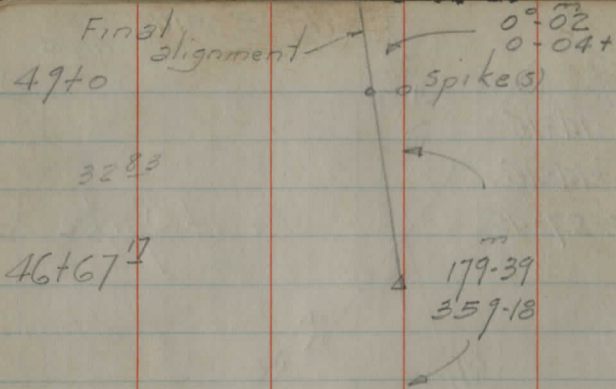 Final
alignment
0°-02
0-04+
49+0
spike(s)
32 83
46+67 17
179-39
359-18